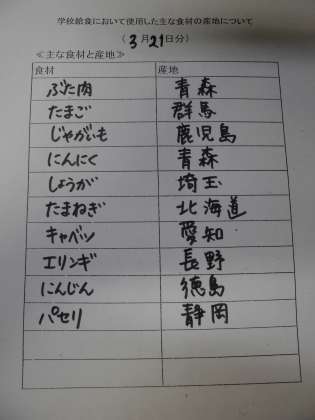 学校給食において使用した主な食材の産地について
(3月21日分)
≪主な食材と産地≫
食材 産地
ぶた肉 青森
たまご 群馬
じゃがいも 鹿児島
にんにく 青森
しょうが 埼玉
たまねぎ 北海道
キャベツ 愛知
エリンギ 長野
にんじん 徳島
パセリ 静岡